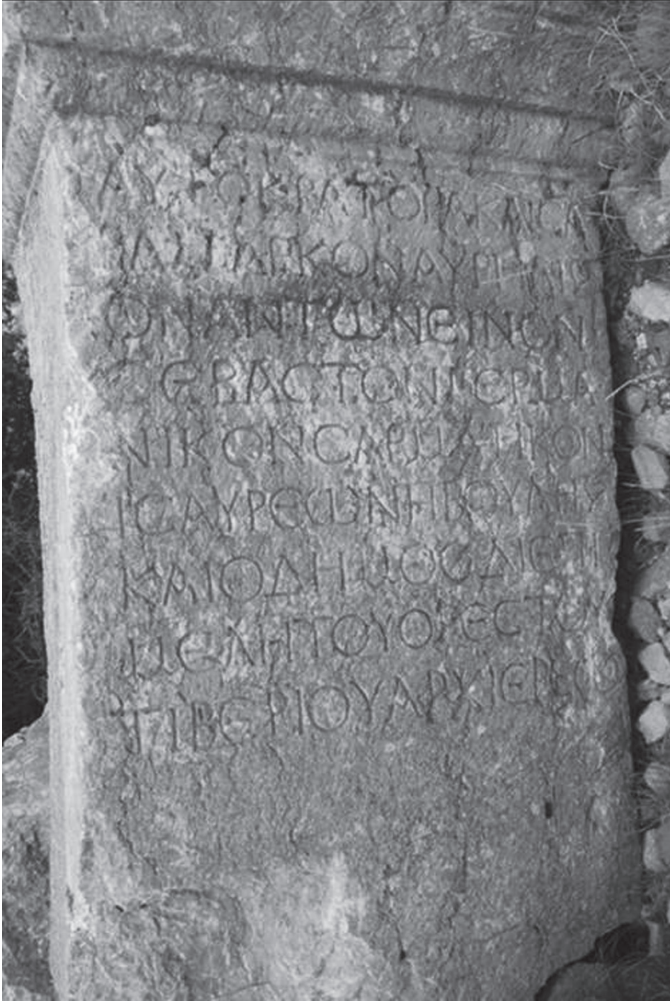 ΑΥΤΟΚΡΑΤΟΡΑΚΑΙϹΑ
ΡΑΜΑΡΚΟΝΑΥΡΗΛΙ
ΟΝΑΝΤωΝΕΙΝΟΝ
ϹΕΒΑϹΤΟΝΓΕΡΜΑ
ΝΙΚΟΝϹΑΡΜΑΤΙΚΟΝ
ΙϹΑΥΡΕωΝΗΒΟΥΛΗ
ΚΑΙΟΔΗΜΟϹΔΙΕΠΙ
ΜΕΛΗΤΟΥΟΡΕϹΤΟΥ
ΤΙΒΕΡΙΟΥΑΡΧΙΕΡΕω